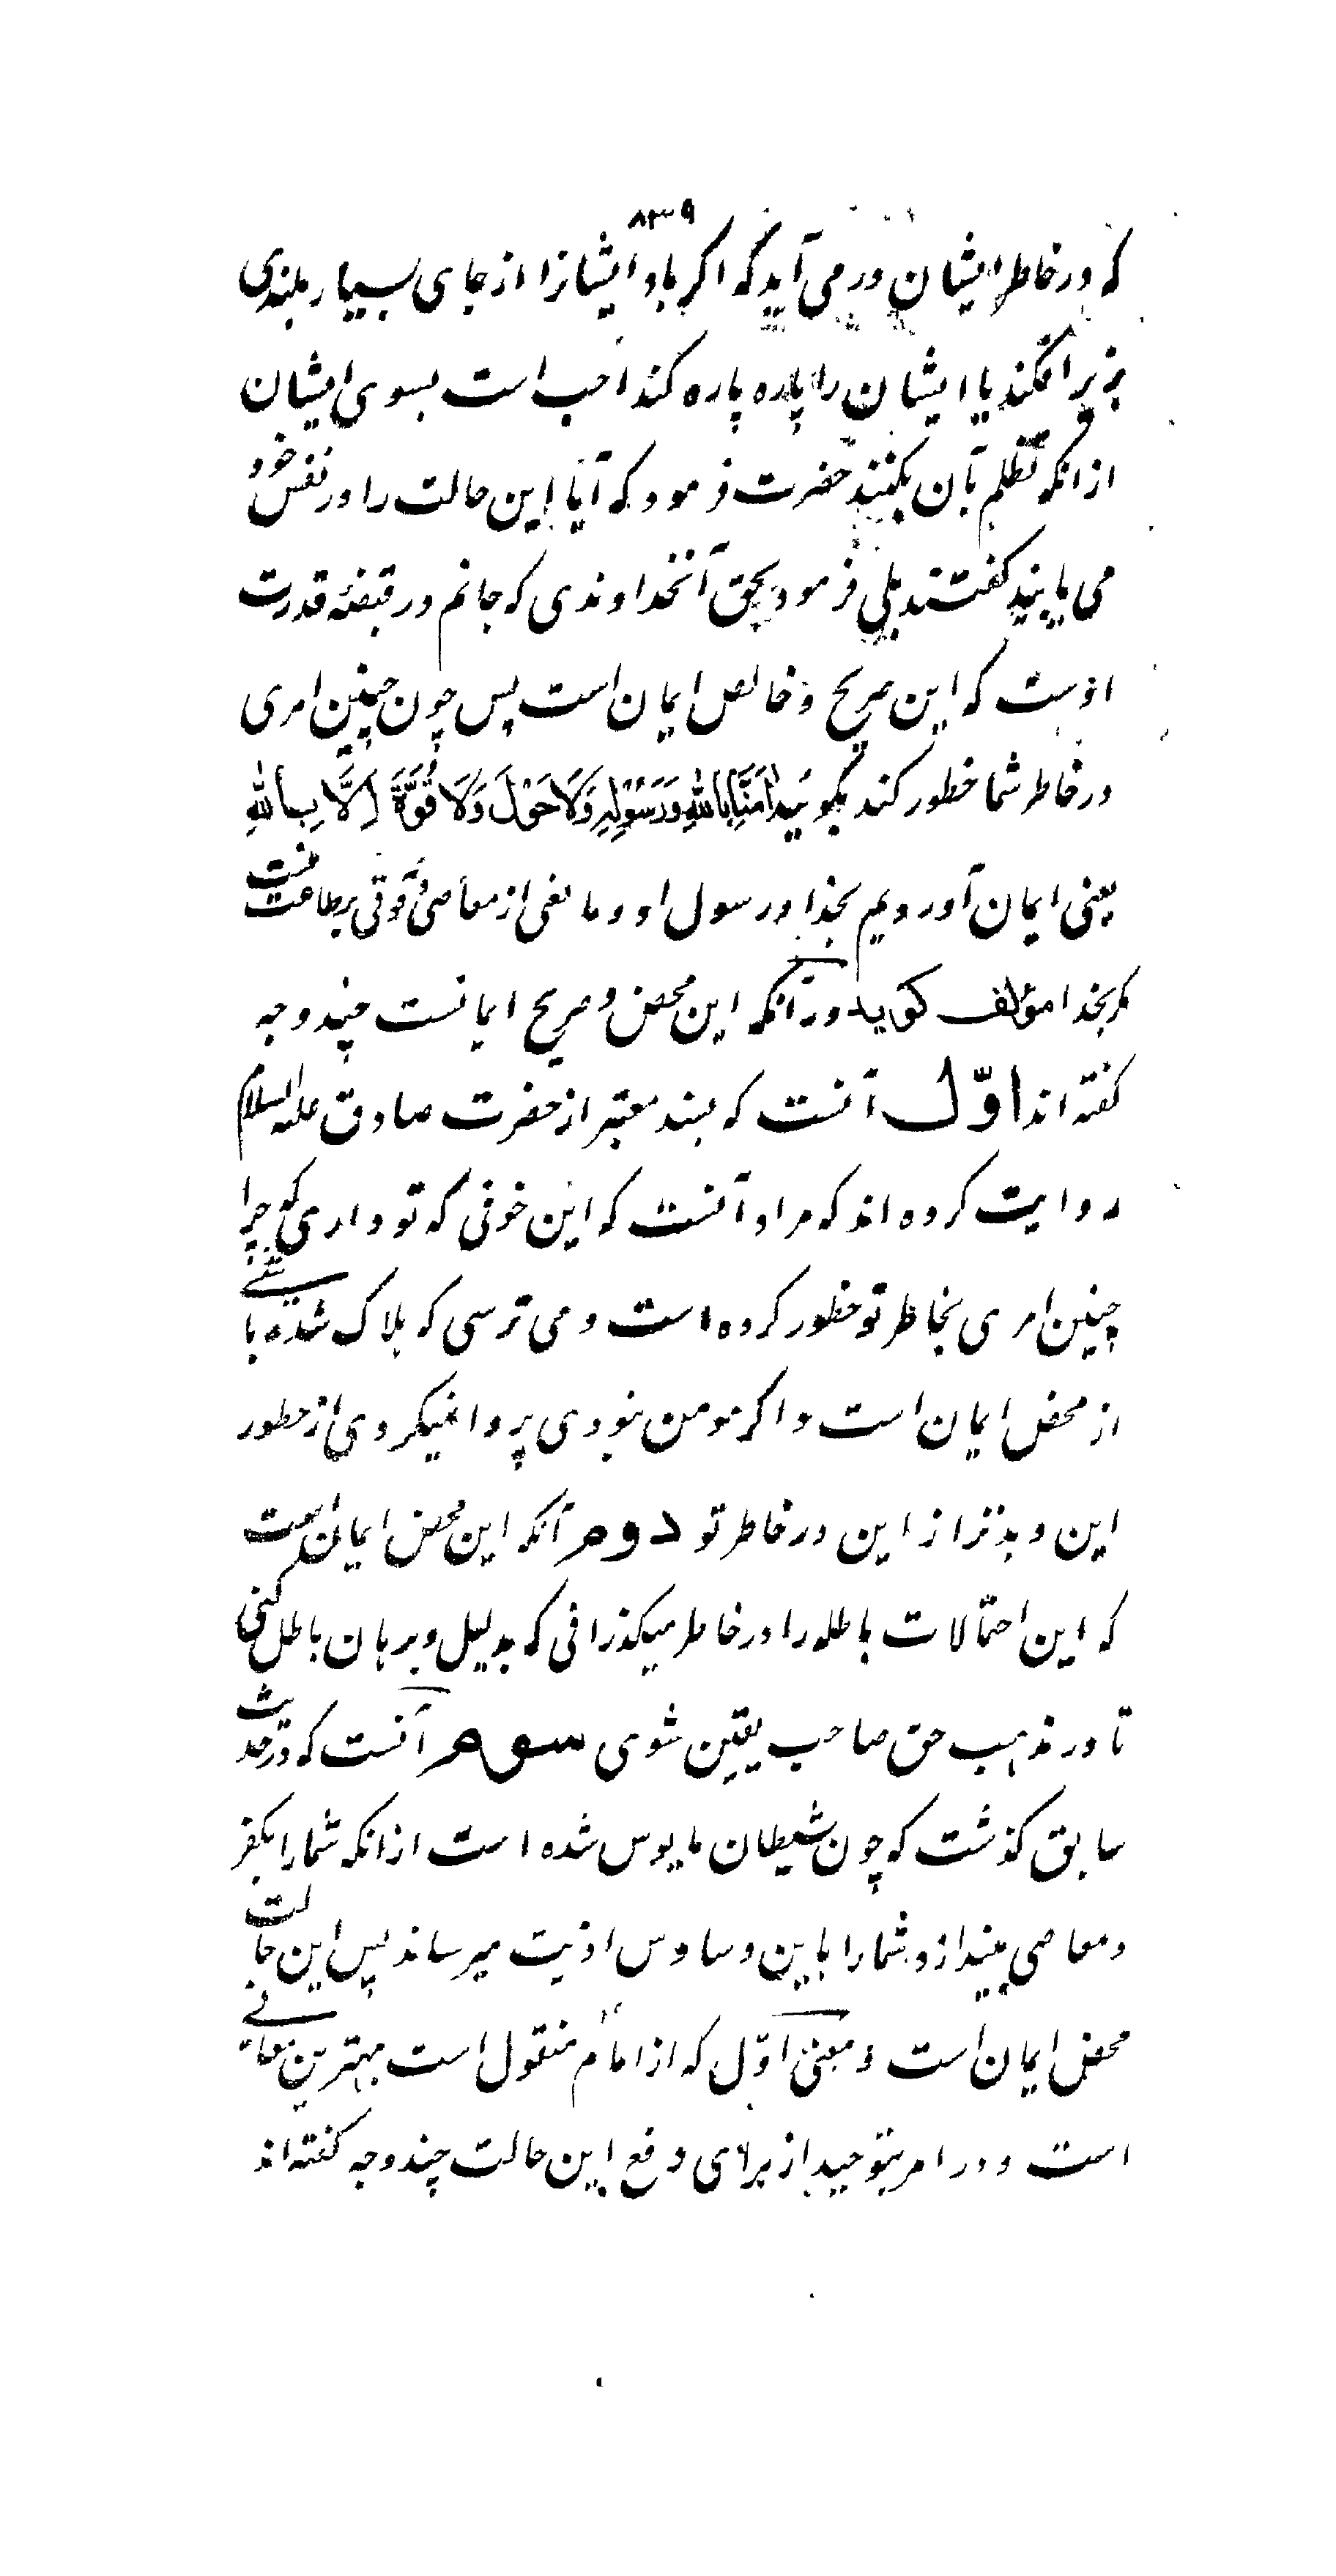 ۸۳۹
که در خاطر ایشان در می آید که اگر باد ایشانرا از جای بسیار بلندی
بزیر افکند یا ایشان را پاره پاره کند احب است بسوی ایشان
از انکه تظلم بآن بکنند حضرت فرمود که آیا این حالت را در نفس خود
می یابید گفتند بلی فرمود بحق آنخداوندی که جانم در قبضهٔ قدرت
اوست که این صریح و خالص ایمان است پس چون چنین امری
در خاطر شما خطور کند بگوئید اٰمَنَّا بِاللّٰهِ وَرَسُوْلِهِ وَلَا حَوْلَ وَلَا قُوَّةَ اِلَّا بِاللّٰهِ
یعنی ایمان آوردیم بخدا و رسول او و مانعی از معاصی و قوتی بر طاعت نیست
مگر بخدا مؤلف گوید در آنکه این محض و صریح ایمانست چند وجه
گفته اند اوّل آنست که بسند معتبر از حضرت صادق علیه السلام
روایت کرده اند که مراد آنست که این خوفی که تو داری که چرا
چنین امری بخاطر تو خطور کرده است و می ترسی که هلاک شده باشی
از محض ایمان است و اگر مومن نبودی پروا نمیکردی از خطور
این و بدتر از این در خاطر تو دوم آنکه این محض ایمان است
که این احتمالات باطله را در خاطر میگذرانی که بدلیل و برهان باطل کنی
تا در مذهب حق صاحب یقین شوی سوم آنست که در حدیث
سابق گذشت که چون شیطان مایوس شده است از انکه شما را بکفر
و معاصی بیندازد شما را باین وساوس اذیت میرساند پس این حالت
محض ایمان است و معنی اوّل که از امام منقول است بهترین معانی
است و در امر بتوحید از برای دفع این حالت چند وجه گفته اند